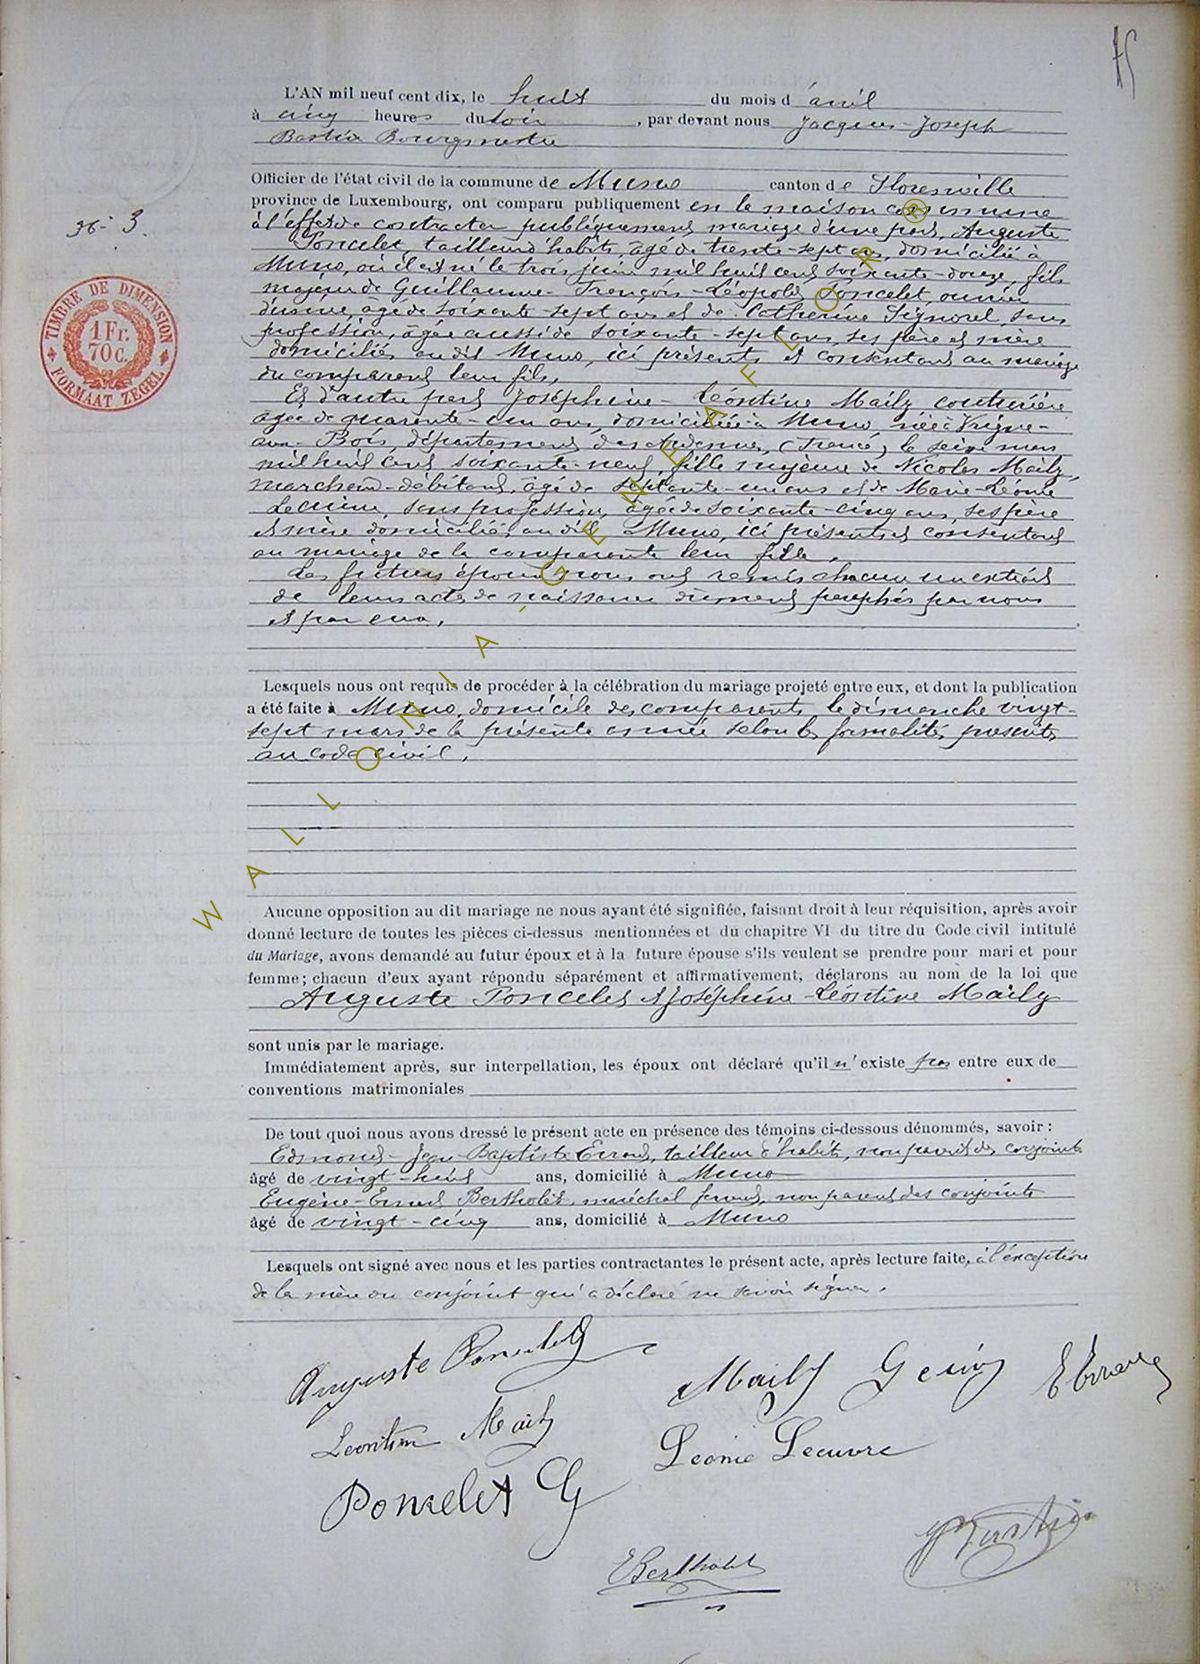 L'AN mil neuf cent dix, le huit du mois d'avril
à cinq heures du soir, par devant nous Jacques-Joseph
Bastin Bourgmestre
Officier de l'état civil de la commune de Muno canton de Florenville
province de Luxembourg, ont comparu publiquement en la maison commune
à l'effet de contracter publiquement mariage d'une part, Auguste
Poncelet, tailleur d'habits, âgé de trente-sept ans, domicilié à
Muno, où il est né le trois juin mil huit cent soixante-douze, fils
majeur de Guillaume-François-Léopold Poncelet, ouvrier
d'usine, âgé de soixante-sept ans et de Catherine Signorel, sans
profession, âgée aussi de soixante-sept ans, ses père et mère
domiciliés au dit Muno, ici présents et consentant au mariage
du comparent leur fils.
36- 3.
TIMBRE DE DIMENSION
1 Fr.
70 c.
FORMAAT ZEGEL
Et d'autre part Joséphine-Léontine Maily couturière
âgée de quarante-un ans, domiciliée à Muno, née à Vrigne-
aux-Bois, département des Ardennes, (France) le seize mars
mil huit cent soixante-neuf, fille majeure de Nicolas Maily,
marchand-débitant, âgé de septante-un ans et de Marie-Léonie
Lecuivre, sans profession, âgée de soixante-cinq ans, ses père
et mère domiciliés au dit Muno, ici présents et consentant
au mariage de la comparente leur fille.
Les futurs époux nous ont remis chacun un extrait
de leurs actes de naissance dûment paraphés par nous
et par eux.
Lesquels nous ont requis de procéder à la célébration du mariage projeté entre eux, et dont la publication
a été faite à Muno, domicile des comparents le dimanche vingt-
sept mars de la présente année selon les formalités prescrites
au code civil.
Aucune opposition au dit mariage ne nous ayant été signifiée, faisant droit à leur réquisition, après avoir
donné lecture de toutes les pièces ci-dessus mentionnées et du chapitre VI du titre du Code civil intitulé
du Mariage, avons demandé au futur époux et à la future épouse s'ils veulent se prendre pour mari et pour
femme; chacun d'eux ayant répondu séparément et affirmativement, déclarons au nom de la loi que
Auguste Poncelet et Joséphine-Léontine Maily
sont unis par le mariage.
Immédiatement après, sur interpellation, les époux ont déclaré qu'il n'existe pas entre eux de
conventions matrimoniales
De tout quoi nous avons dressé le présent acte en présence des témoins ci-dessous dénommés, savoir :
Edmond-Jean-Baptiste Errard, tailleur d'habits, non parent des conjoints
âgé de vingt-huit ans, domicilié à Muno
Eugène-Ernest Bertholet, maréchal ferrant, non parent des conjoints
âgé de vingt-cinq ans, domicilié à Muno
Lesquels ont signé avec nous et les parties contractantes le présent acte, après lecture faite, à l'exception
de la mère du conjoint qui a déclaré ne savoir signer.
Auguste Poncelet
Maily
E Errard
Léontine Maily
Léonie Lecuivre
Poncelet G
Bastin
E Bertholet
WALLONIA-GENEAFLOR®